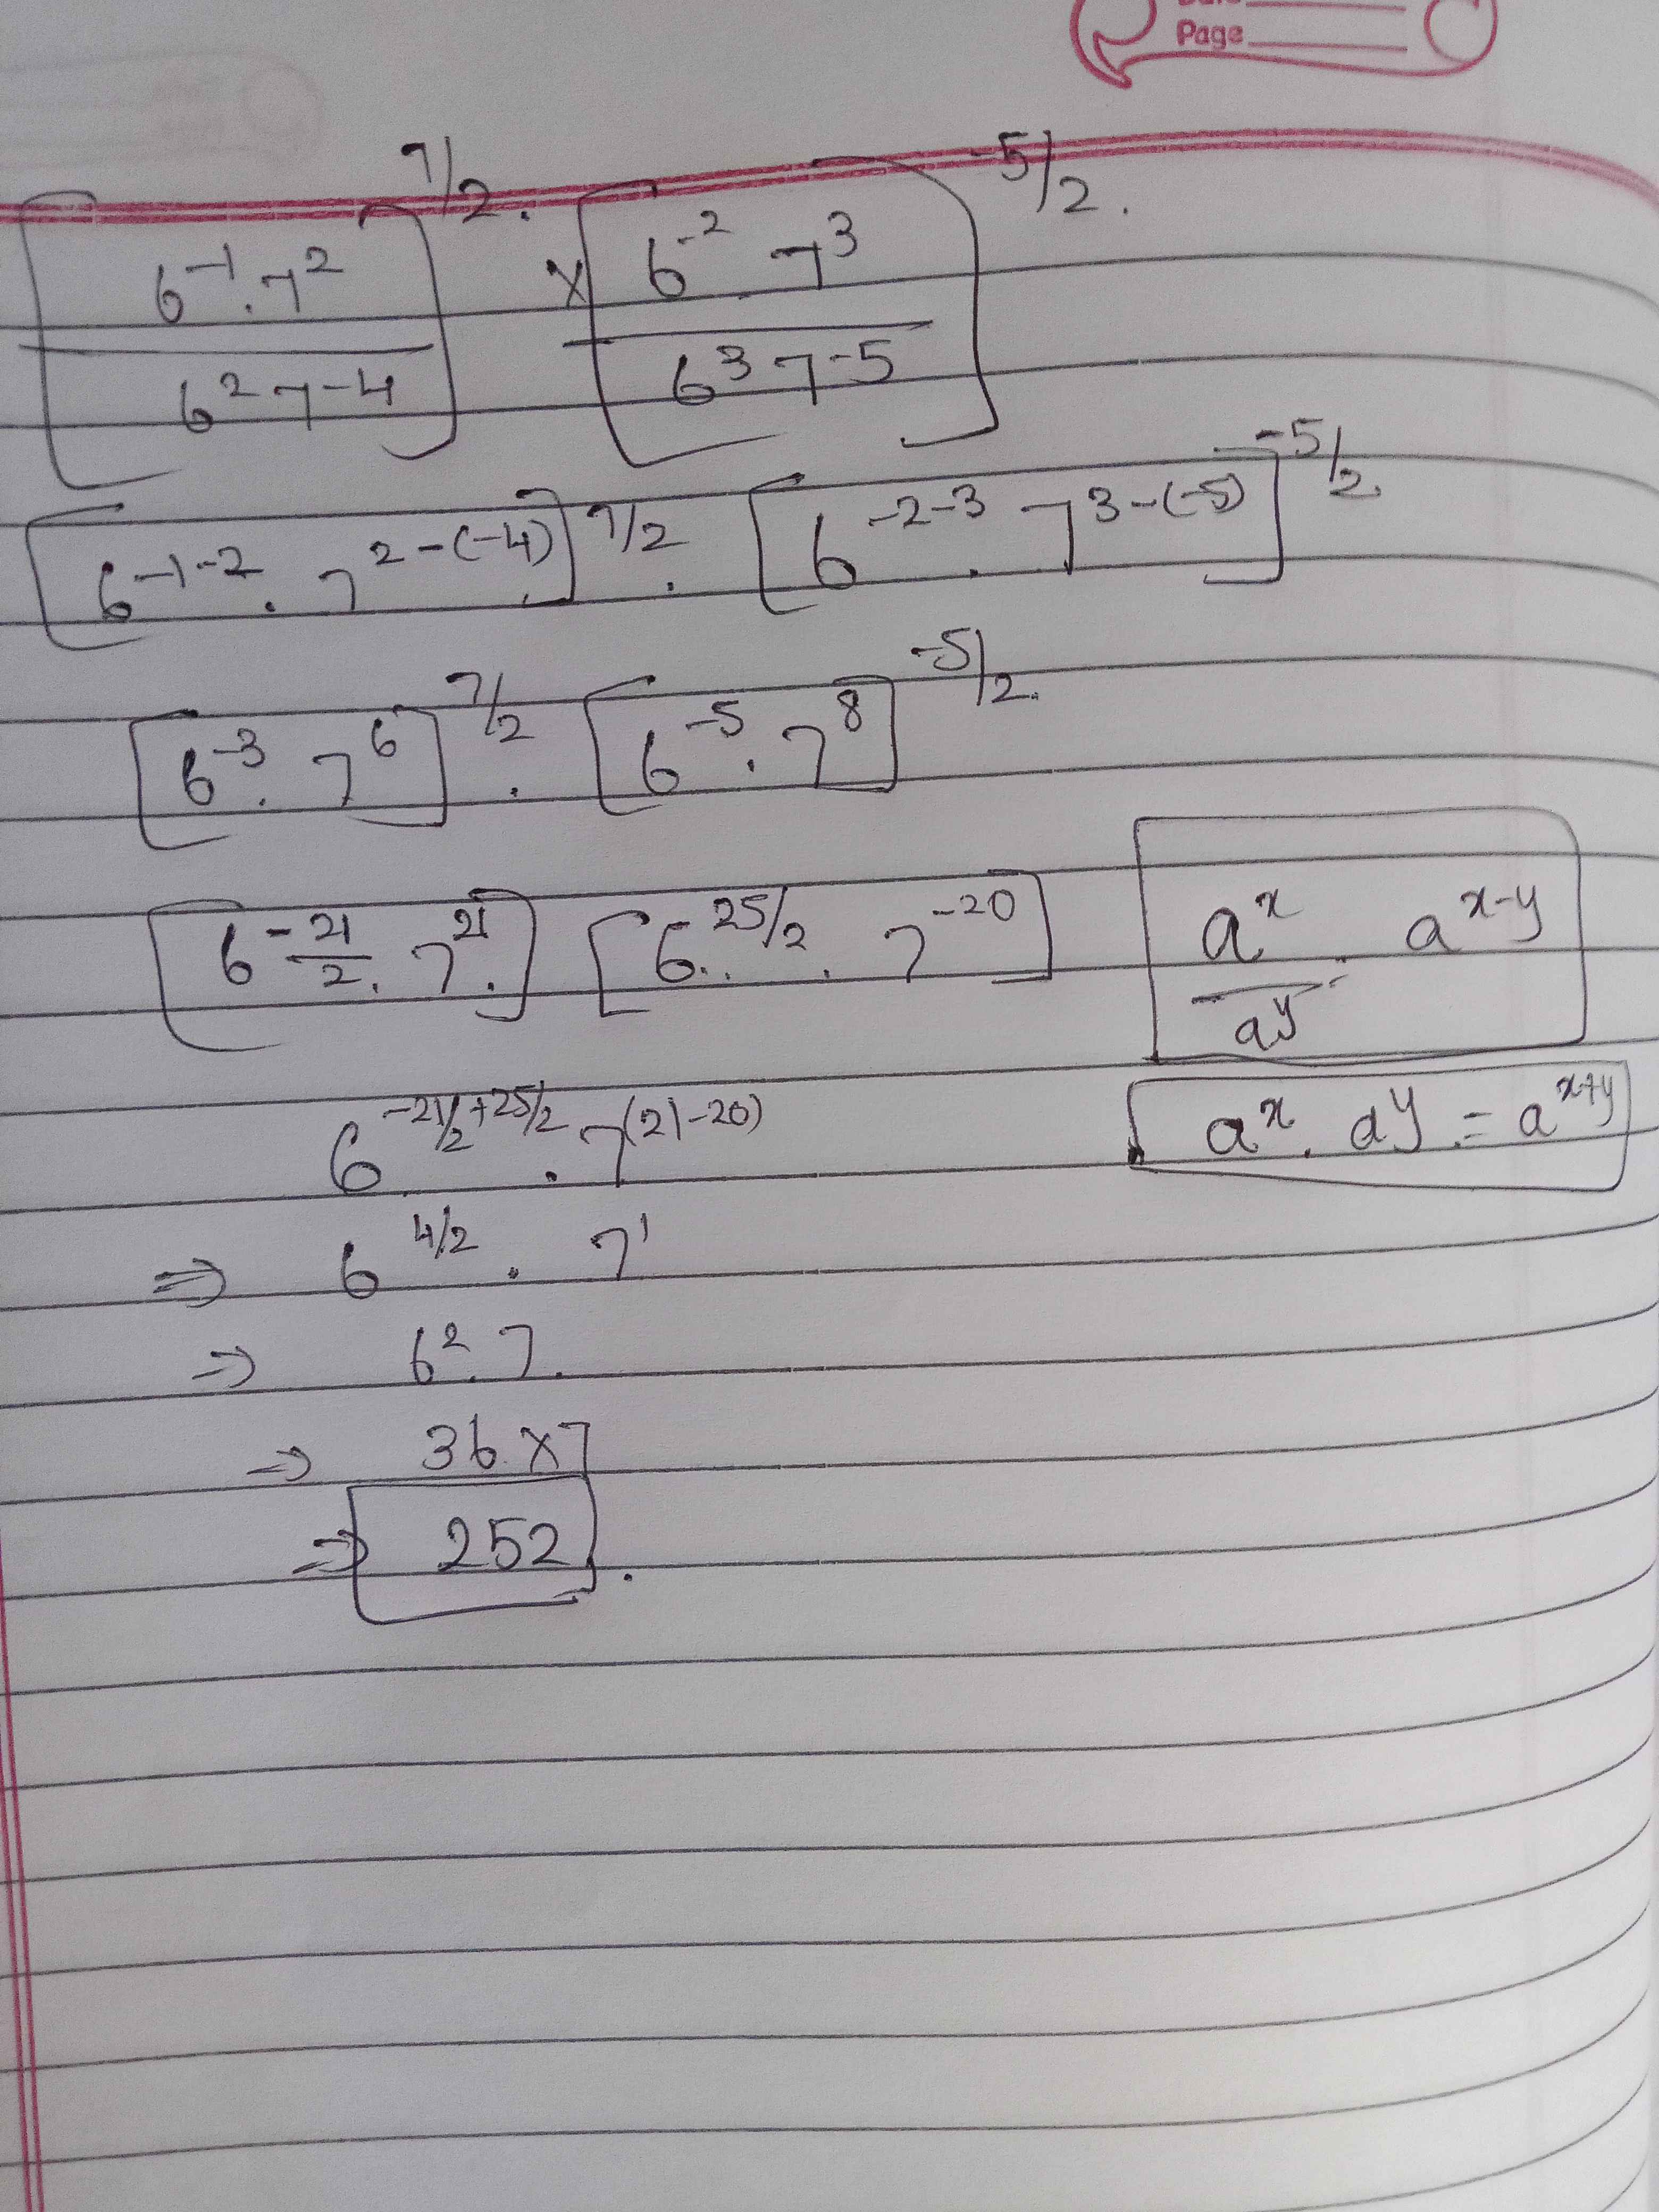 Page
[6^-1 . 7^2 / 6^2 7^-4]^7/2 . × [6^-2 . 7^3 / 6^3 7^-5]^-5/2 .
[6^-1-2 . 7^2-(-4)]^7/2 . [6^-2-3 . 7^3-(-5)]^-5/2 .
[6^-3 . 7^6]^7/2 . [6^-5 . 7^8]^-5/2 .
[6^-21/2 . 7^21 .] [6^25/2 . 7^-20]
a^x / a^y = a^x-y
6^-21/2+25/2 . 7^(21-20)
a^x . a^y = a^x+y
⇒ 6^4/2 . 7^1
⇒ 6^2 . 7 .
⇒ 36 × 7
⇒ 252 .